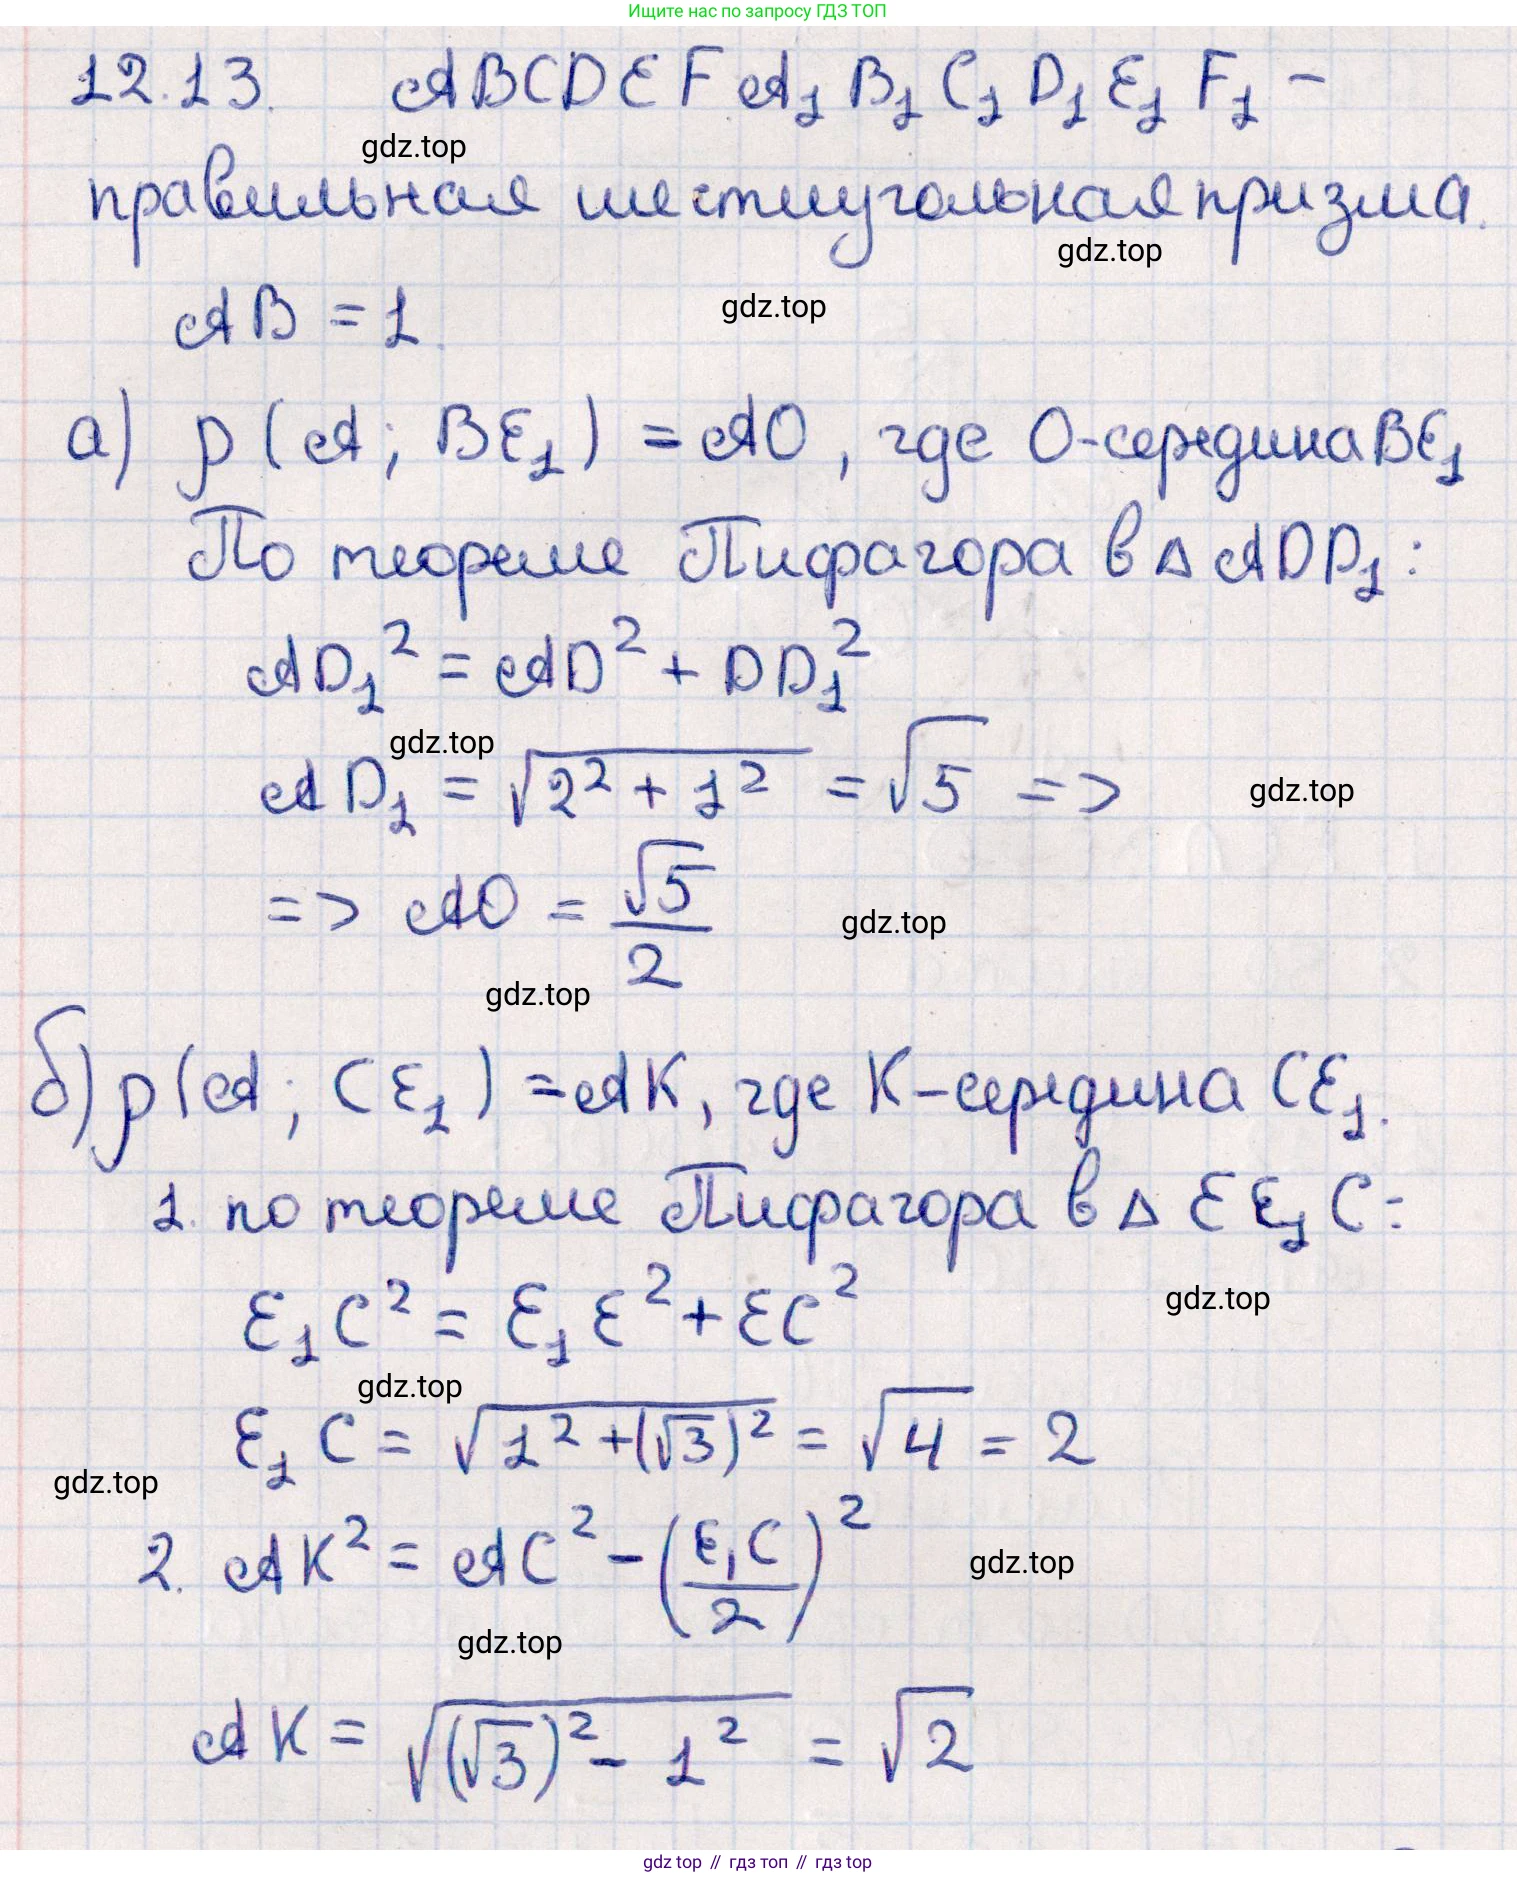 Ищите нас по запросу ГДЗ ТОП
12.13. ABCDEFA₁B₁C₁D₁E₁F₁ –
gdz.top
правильная шестиугольная призма.
gdz.top
AB = 1.
gdz.top
а) ρ(A; BE₁) = AO, где O-середина BE₁
По теореме Пифагора в △ADD₁:
AD₁² = AD² + DD₁²
gdz.top
AD₁ = √(2² + 1²) = √5 =>
gdz.top
=> AO = √5/2
gdz.top
gdz.top
б) ρ(A; CE₁) = AK, где K-середина CE₁.
1. по теореме Пифагора в △EE₁C:
E₁C² = E₁E² + EC²
gdz.top
gdz.top
E₁C = √(1² + (√3)²) = √4 = 2
gdz.top
2. AK² = AC² – (E₁C/2)²
gdz.top
gdz.top
AK = √((√3)² – 1²) = √2
gdz top // гдз топ // гдз top